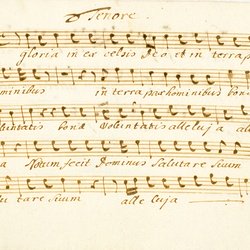 Tenore.
gloria in ex celsis Deo et in terra p
ominibus in terra pax hominibus bon
oluntatis bonæ Voluntatis alleluja a
a Notum fecit Dominus Salutare Suum
lu tare Suum alle luja